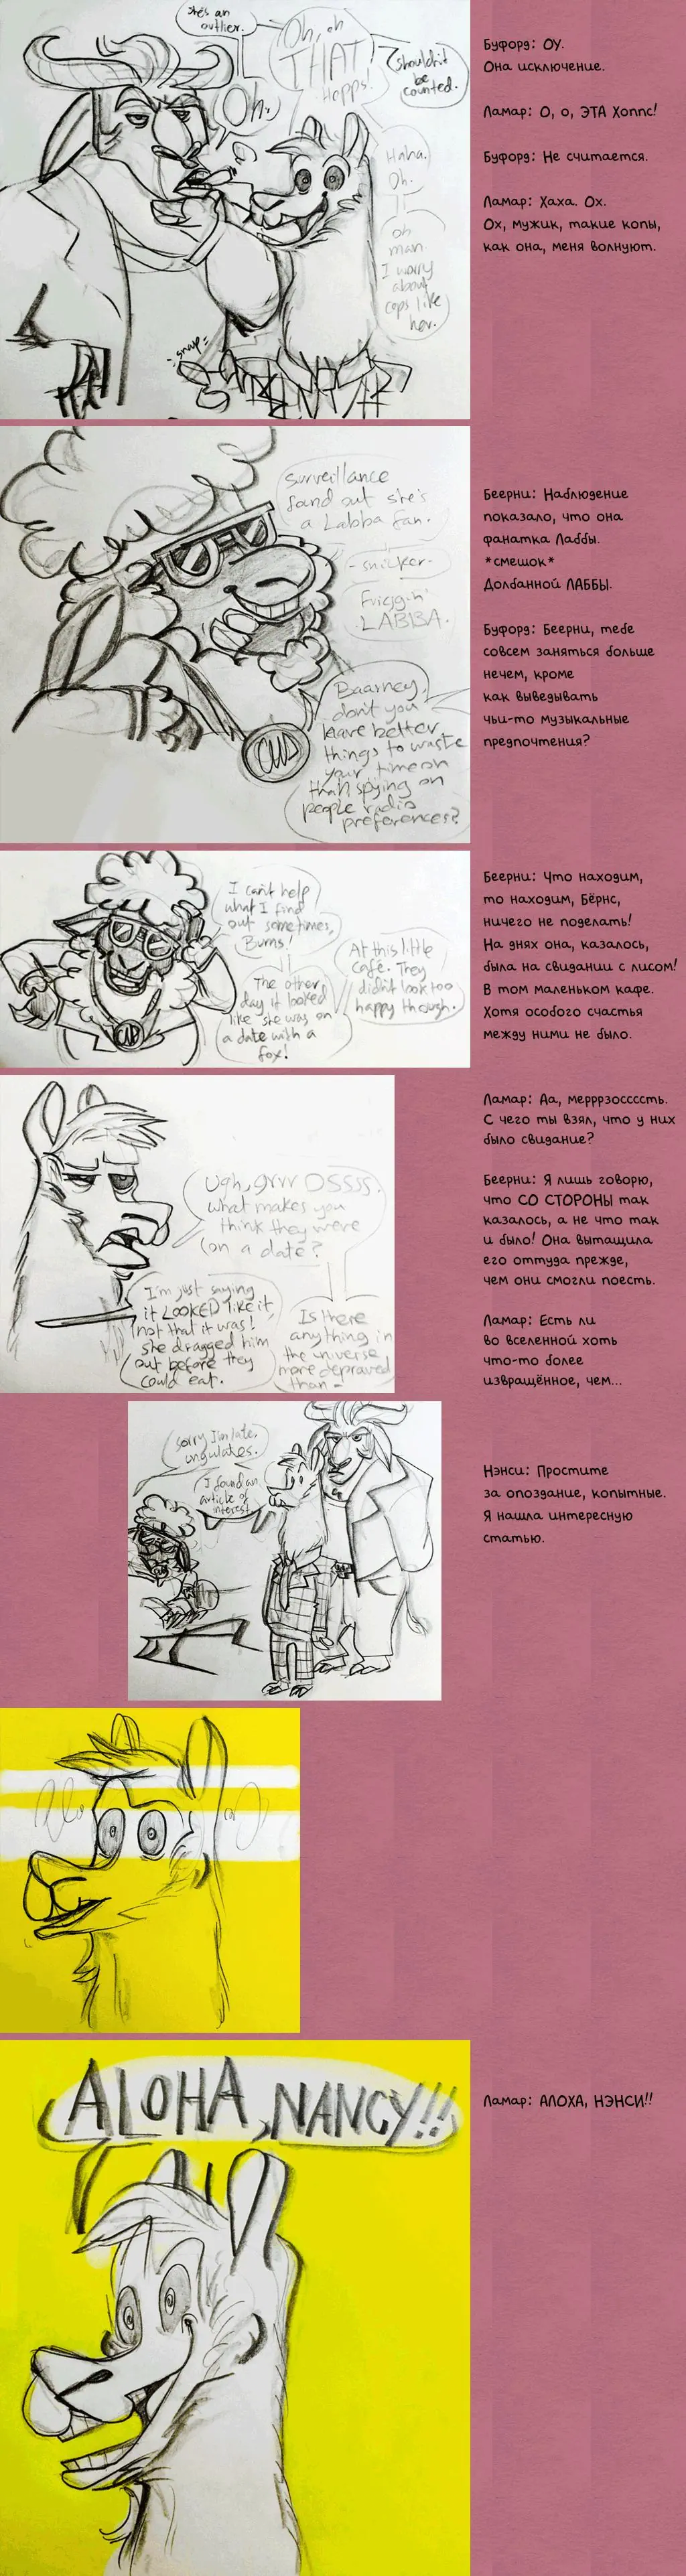 she's an
outlier.
Oh.
Oh, oh
THAT
Hopps!
shouldn't
be
counted.
Haha.
Oh.
oh
man.
I worry
about
cops like
her.
-snap-
Буфорд: ОУ.
Она исключение.
Ламар: О, о, ЭТА Хоппс!
Буфорд: Не считается.
Ламар: Хаха. Ох.
Ох, мужик, такие копы,
как она, меня волнуют.
Surveillance
found out she's
a Labba fan.
-snicker-
Friggin'
LABBA.
Baarney,
don't you
have better
things to waste
your time on
than spying on
people radio
preferences?
Беерни: Наблюдение
показало, что она
фанатка Лаббы.
*смешок*
Долбанной ЛАББЫ.
Буфорд: Беерни, тебе
совсем заняться больше
нечем, кроме
как выведывать
чьи-то музыкальные
предпочтения?
I can't help
what I find
out sometimes,
Burns!
The other
day it looked
like she was on
a date with a
fox!
At this little
Café. They
didn't look too
happy though.
Беерни: Что находим,
то находим, Бёрнс,
ничего не поделать!
На днях она, казалось,
была на свидании с лисом!
В том маленьком кафе.
Хотя особого счастья
между ними не было.
Ugh, grrrOSSSS.
what makes you
think they were
on a date?
I'm just saying
it LOOKED like it,
not that it was!
she dragged him
out before they
could eat.
Is there
anything in
the universe
more depraved
than -
Ламар: Аа, мерррзоссссть.
С чего ты взял, что у них
было свидание?
Беерни: Я лишь говорю,
что СО СТОРОНЫ так
казалось, а не что так
и было! Она вытащила
его оттуда прежде,
чем они смогли поесть.
Ламар: Есть ли
во вселенной хоть
что-то более
извращённое, чем...
sorry I'm late,
ungulates.
I found an
article of
interest
Нэнси: Простите
за опоздание, копытные.
Я нашла интересную
статью.
ALOHA, NANCY!!
Ламар: АЛОХА, НЭНСИ!!